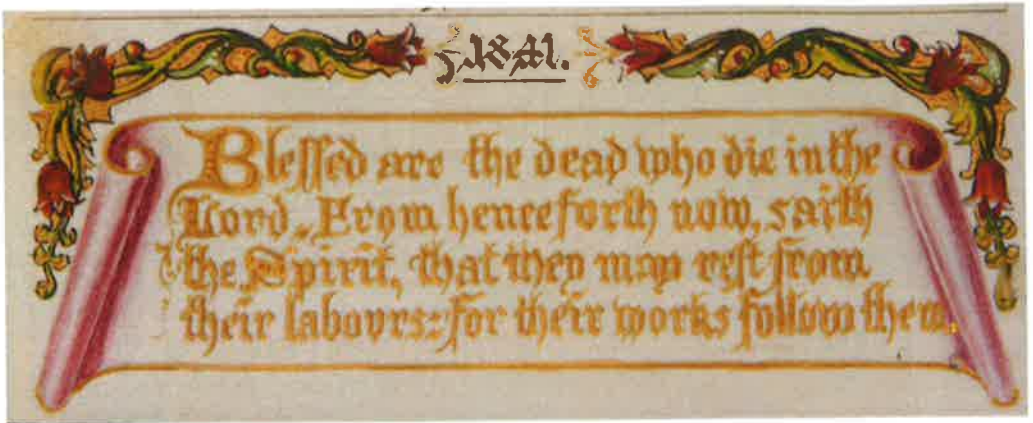 1841.
Blessed are the dead who die in the
Lord. From henceforth now, saith
the Spirit, that they may rest from
their labours: for their works follow them.